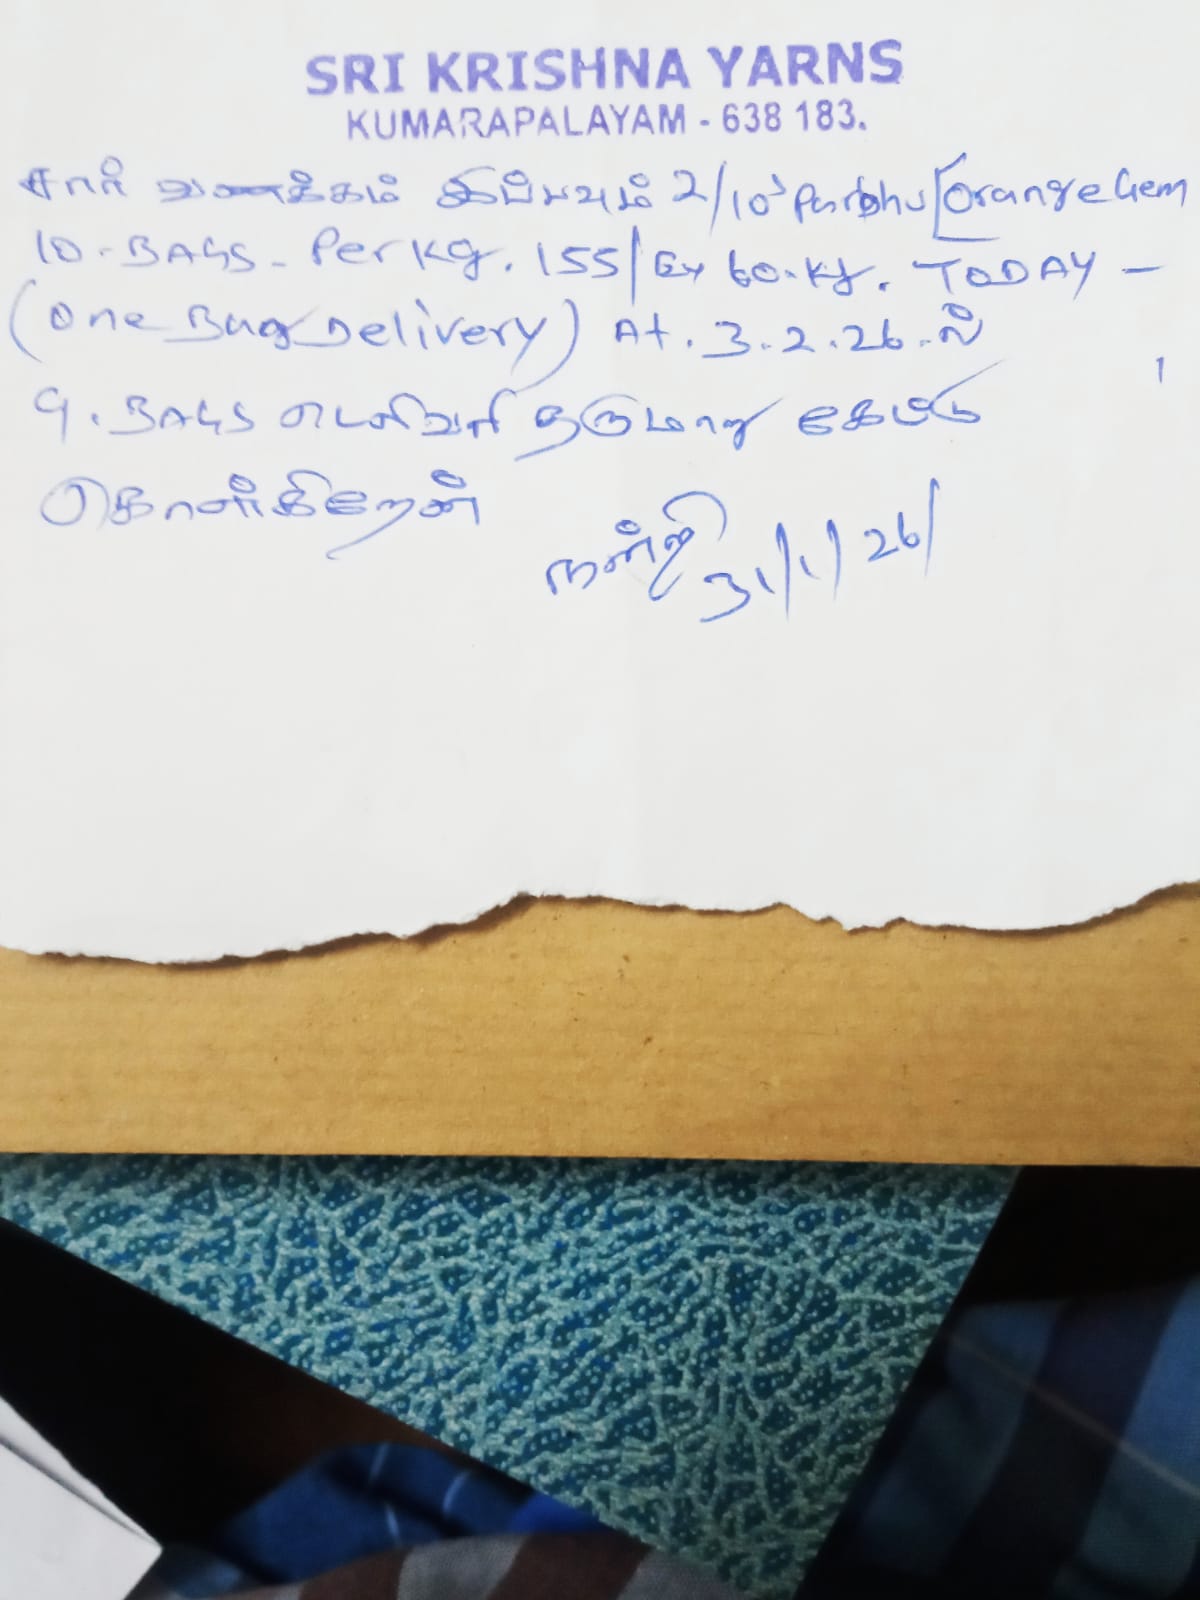 SRI KRISHNA YARNS
KUMARAPALAYAM - 638 183.
சார் வணக்கம் இப்பவும் 2/10s Parbhu [Orange Gem
10. BAGS - Per Kg. 155/ Ex 60. Kg. TODAY -
(One Bag Delivery) At. 3.2.26.ல்
9. BAGS டெலிவரி தருமாறு கேட்டு
கொள்கிறேன்
நன்றி
31/1/26/